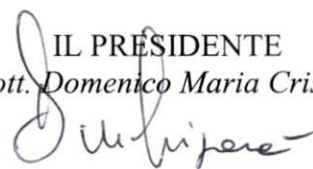 IL PRESIDENTE
ott. Domenico Maria Cris